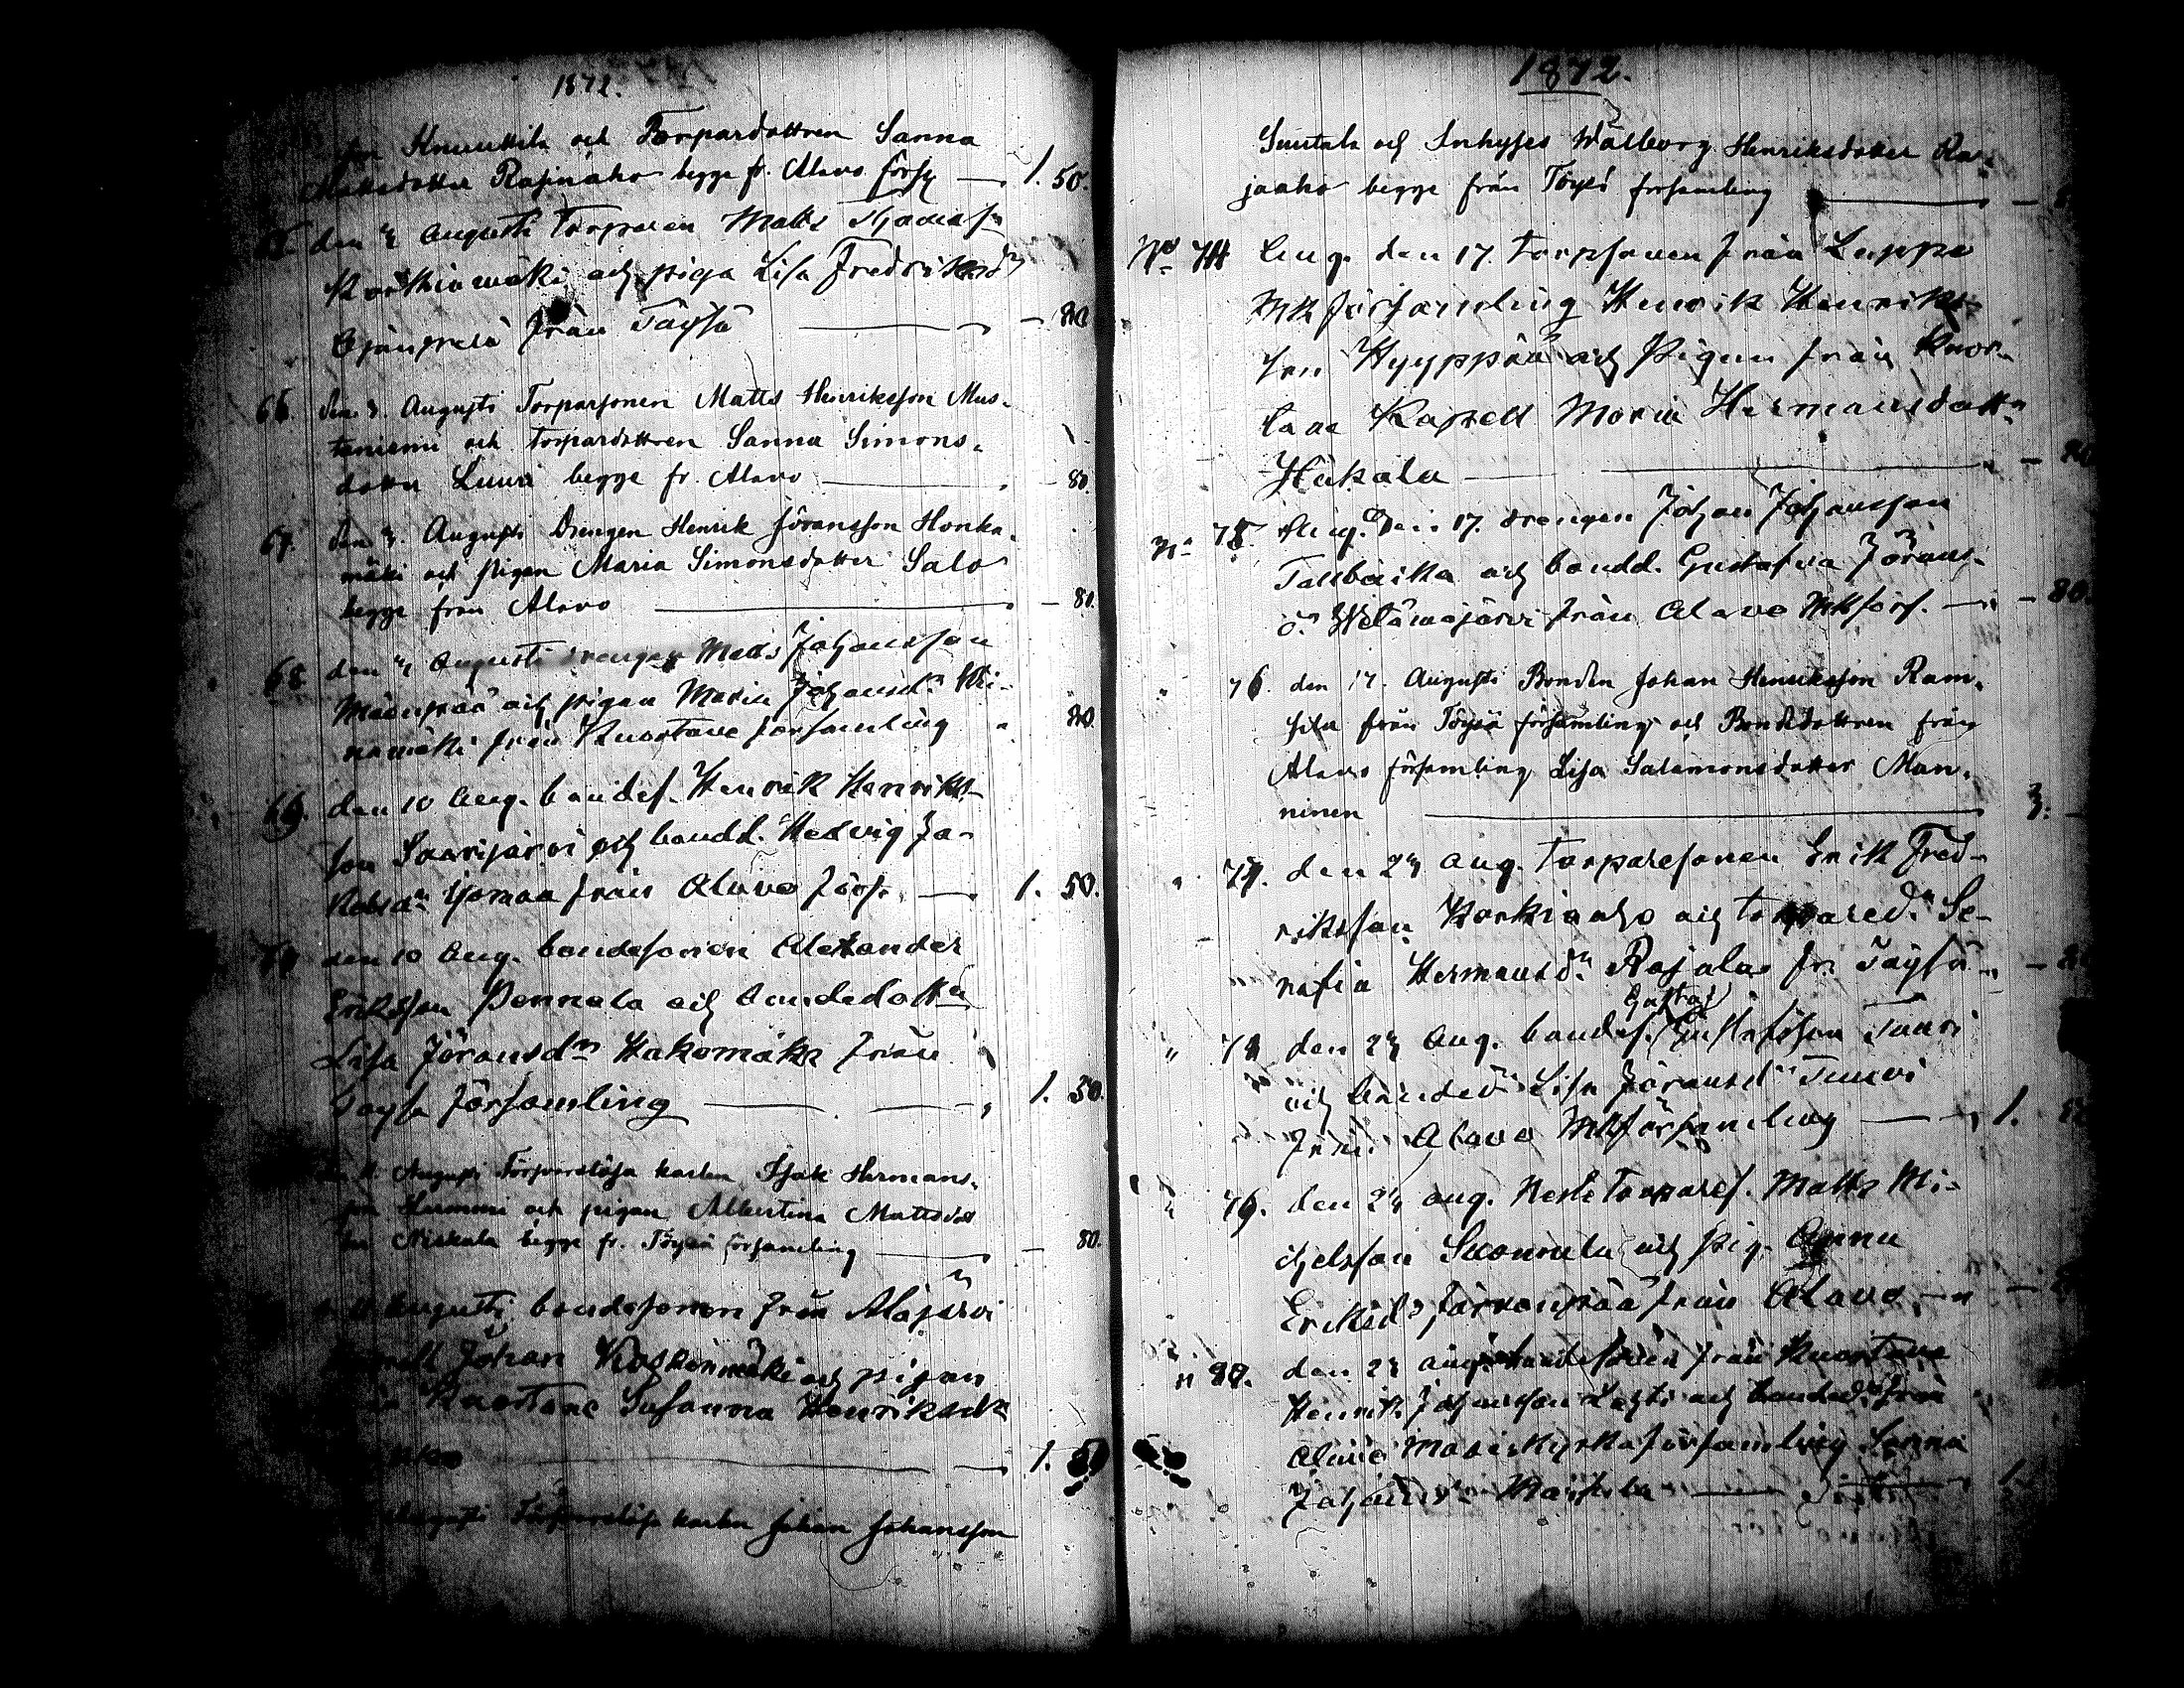 1872.
son Knuuttila och Torpardottren Sanna
Mattsdotter Rajnaho begge fr. Alavo förs. — 1. 50.
65. den 3 Augusti Torparen Matts
Korkiamäki och piga Lisa Fredriksdr
från Töysä — 80
66. den 3. Augusti Torparsonen Matts Henriksson Mus-
taniemi och torpardottren Sanna Simons-
dotter Luuri begge fr. Alavo — 80.
67. den 3. Augusti Drengen Henrik Jöransson Honka-
mäki och pigan Maria Simonsdotter Salo
begge från Alavo — 80.
68. den 3 Augusti drengen Matts Johansson
Mäenpää och pigan Maria Johansdr
från Kuortane församling " 80.
69. den 10 Aug. bondes. Henrik Henriks-
son Saarijärvi och bondd. Hedvig Ja-
kobsdr Yömaa från Alavo förs. — 1. 50.
70 den 10 Aug. bondesonen Alexander
Eriksson Pennala och bondedottr
Lisa Jöransdr Hakomäki från
Töysä församling — 1. 50.
Augusti Försvarslösa karlen Isak Hermans-
son Lummi och pigan Albertina Mattsdot
ter Niskala begge fr. Töysä församling — 80.
Augusti bondesonen från Alajärvi
Kapell Johan Koskenmäki och pigan
Kuortane Susanna Henriksdr
— 1.
Augusti Försvarslösa karlen Johan Johansson
1872.
Suutala och Inhyses Walborg Henriksdotter Ra-
jaaho begge från Töysä församling —
No 74 Aug. den 17. torpsonen från Lappo
Mk församling Henrik Henriks-
son Hyyppää och Pigan från Kuor-
tane Kapell Maria Hermansdottr
Hakala — 80
No 75. Aug. den 17. drengen Johan Johansson
Tallbacka och bondd. Gustafva Jörans-
dr Wetämäjärvi från Alavo Mk förs. — 80.
" 76. den 17. Augusti Bonden Johan Henriksson Ram-
sila från Töysä församling och Bondedottren från
Alavo församling Lisa Salamonsdotter Man-
ninen — 3. –
" 77. den 24 aug. torparesonen Erik Fred-
riksson Korkiaaho och torpared. Se-
rafia Hermansdr Rajala fr. Töysä — 80
" 78 den 24 Aug. bondes. Gustaf Gustafsson Tuuri
och bonded. Lisa Jöransdr Tuuri
från Alavo Mkförsamling — 1.
" 79. den 24 aug. torpares. Matts Mi-
chelsson Suonnela och pig. Anna
Eriksdr Järvenpää från Alavo —
" 80. den 24 aug. bondesonen från Kuortane
Henrik Johansson Lahti och bonded. från
Alavo Moderkyrkoförsamling Sanna
Johansdr — 1.